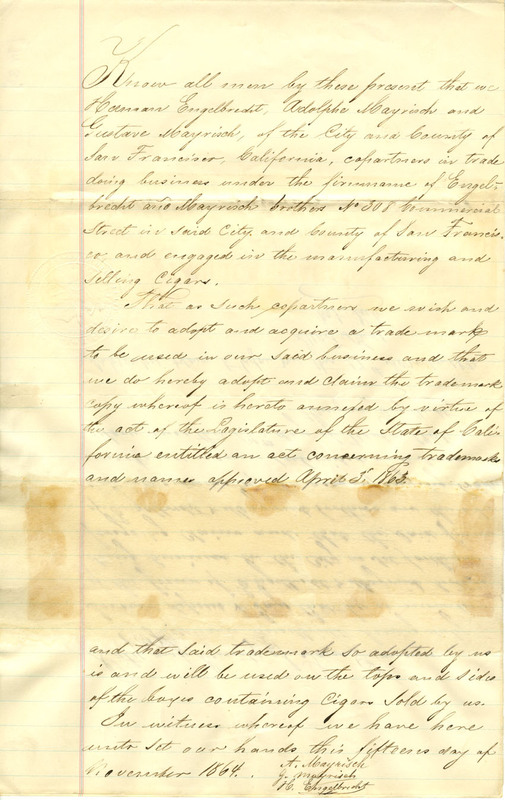 Know all men by these present that we
Herman Engelbrecht, Adolphe Mayrisch and
Gustave Mayrisch, of the City and County of
San Francisco, California, copartners in trade
doing business under the firm name of Engel-
brecht and Mayrisch brothers No 308 Commercial
Street in said City and County of San Francis-
co, and engaged in the manufacturing and
selling Cigars.
That as such copartners we wish and
desire to adopt and acquire a trade mark
to be used in our said business and that
we do hereby adopt and claim the trademark
copy whereof is hereto annexed by virtue of
the act of the Legislature of the State of Cali-
fornia entitled an act concerning trademarks
and names approved April 3d, 1863.
and that said trademark so adopted by us
is and will be used on the tops and sides
of the boxes containing Cigars sold by us.
In witness whereof we have here
unto set our hands this fifteens day of
November 1864.
A. Mayrisch
G. Mayrisch
H. Engelbrecht